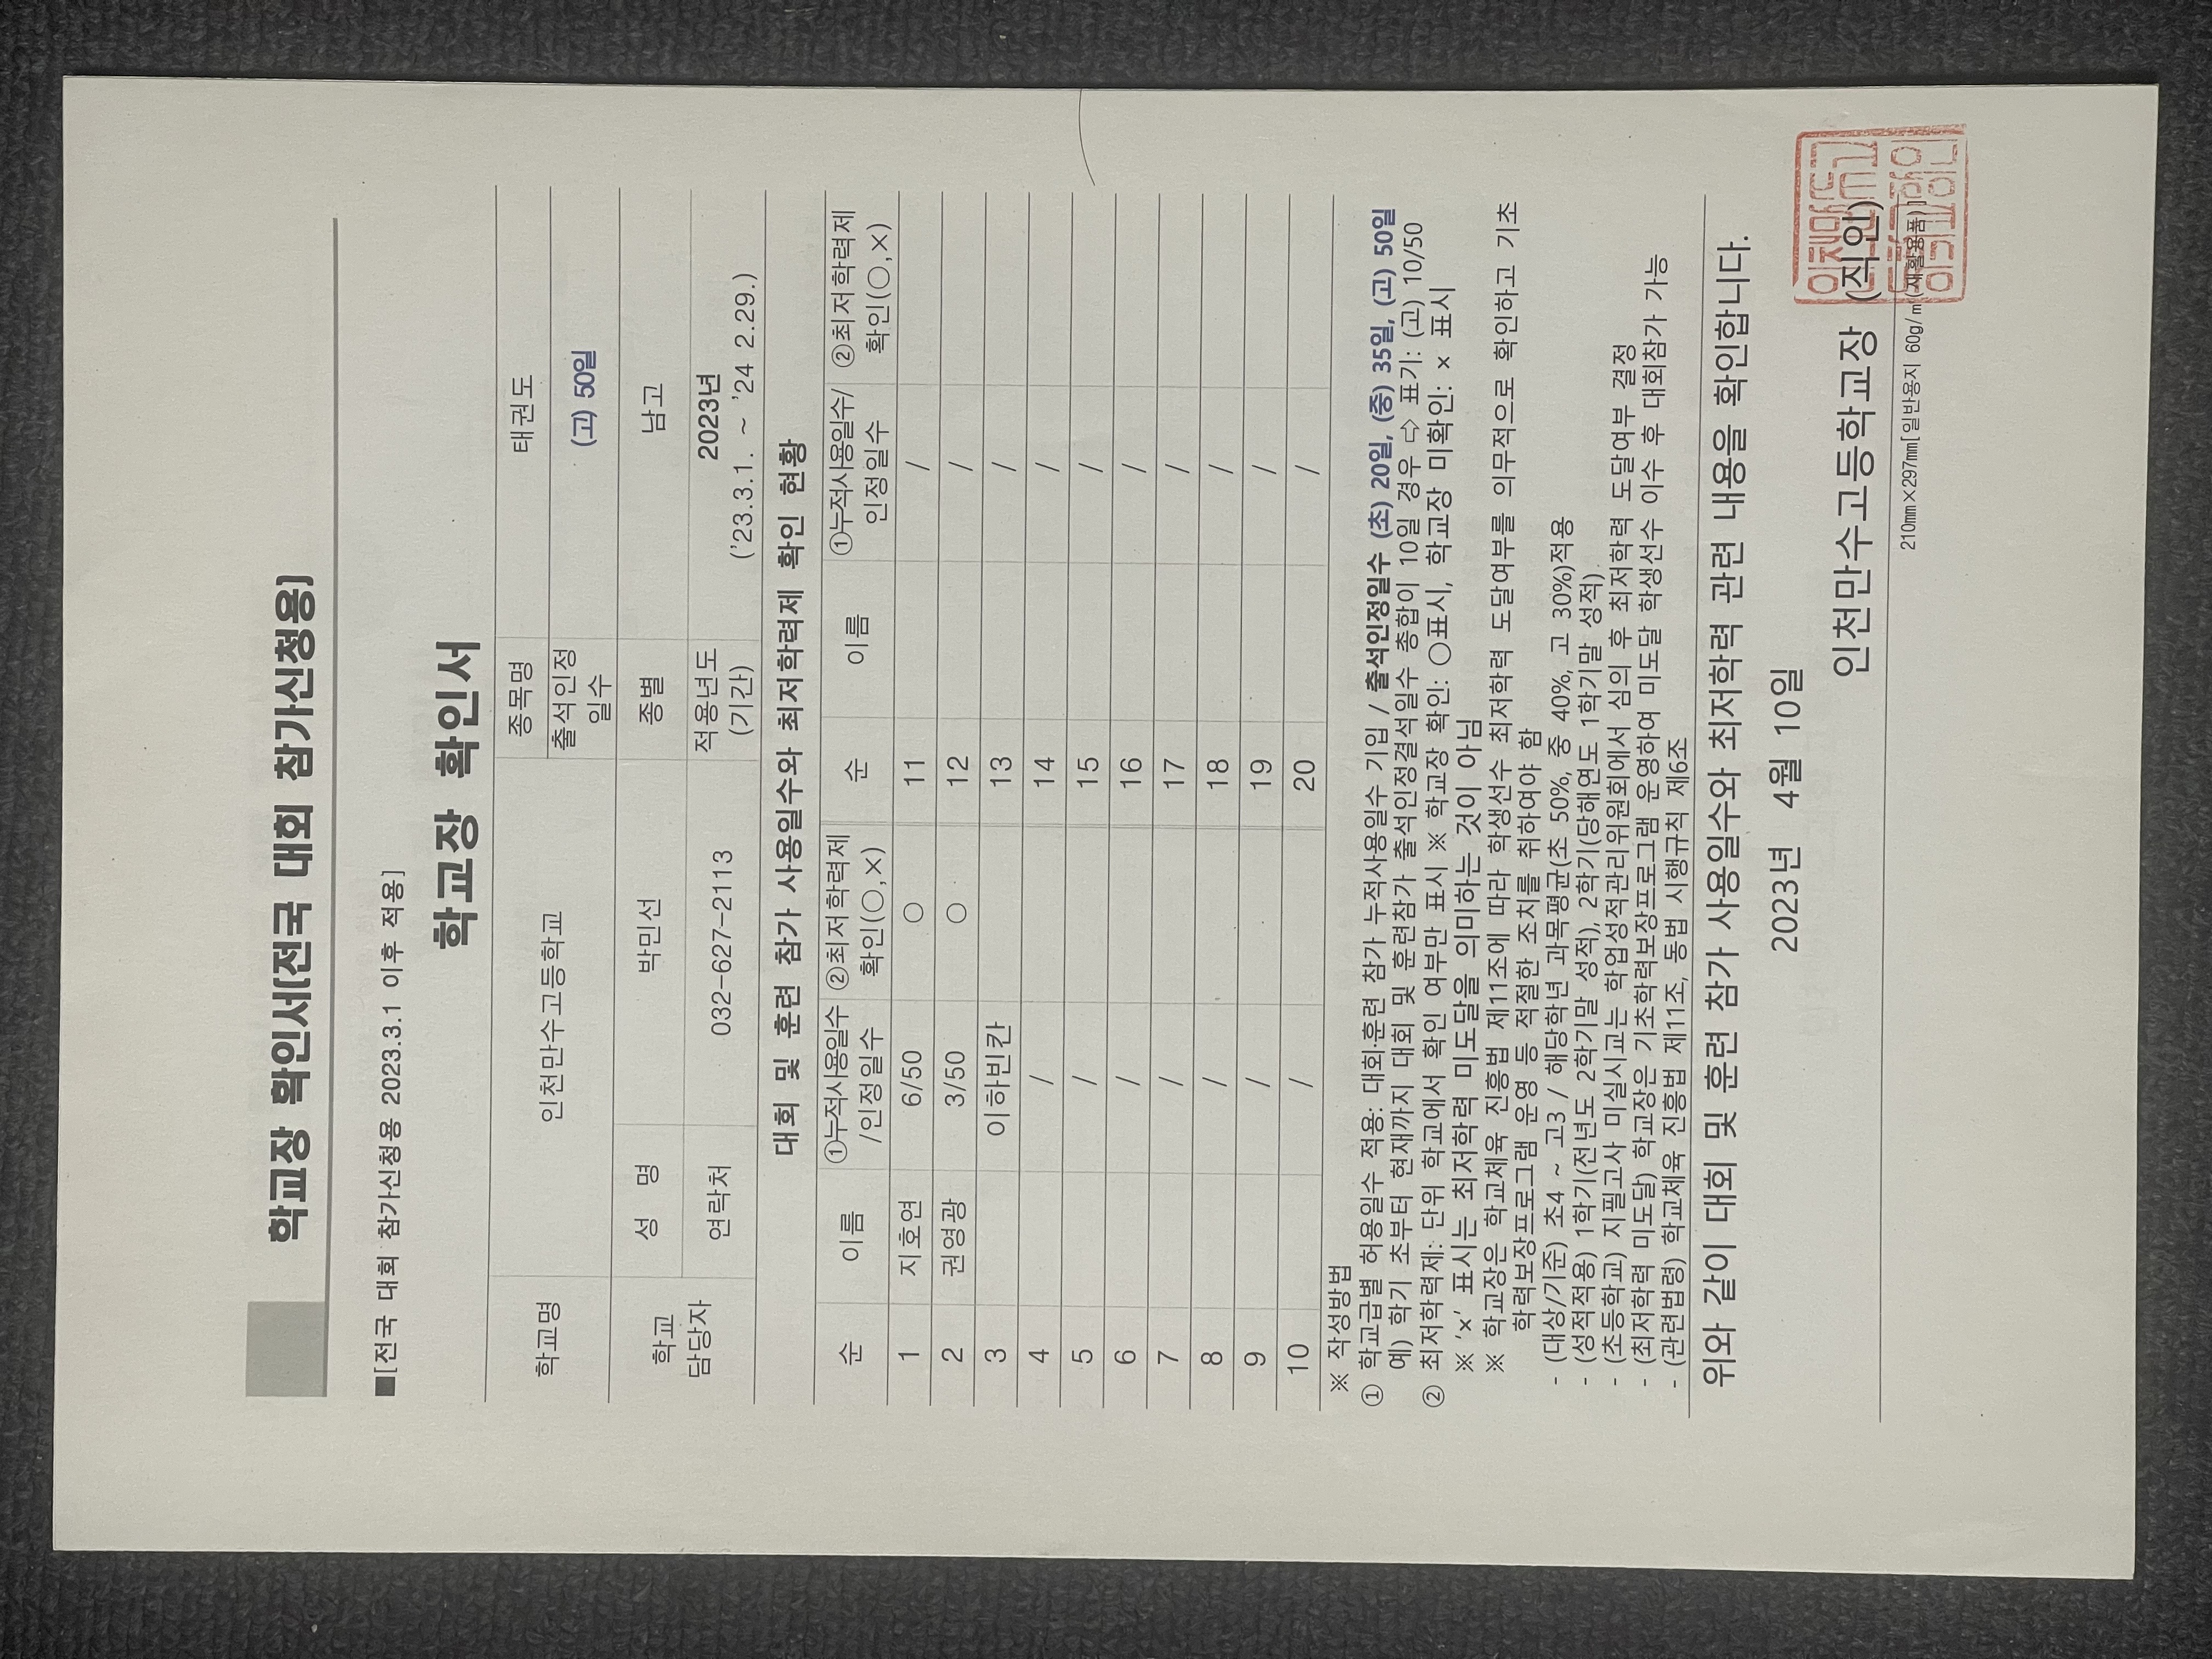 학교장 확인서(전국 대회 참가신청용)
■[전국 대회 참가신청용 2023.3.1 이후 적용]
학교장 확인서
학교명 인천만수고등학교 종목명 태권도
출석인정일수 (고) 50일
학교 담당자 성 명 박민선 종별 남고
연락처 032-627-2113 적용년도 (기간) 2023년 ('23.3.1. ~ '24 2.29.)
대회 및 훈련 참가 사용일수와 최저학력제 확인 현황
순 이름 ①누적사용일수/인정일수 ②최저학력제 확인(○,×) 순 이름 ①누적사용일수/인정일수 ②최저학력제 확인(○,×)
1 지호연 6/50 ○ 11 /
2 권영광 3/50 ○ 12 /
3 이하빈칸 13 /
4 / 14 /
5 / 15 /
6 / 16 /
7 / 17 /
8 / 18 /
9 / 19 /
10 / 20 /
※ 작성방법
① 학교급별 허용일수 적용: 대회·훈련 참가 누적사용일수 기입 / 출석인정일수 (초) 20일, (중) 35일, (고) 50일
예) 학기 초부터 현재까지 대회 및 훈련참가 출석인정결석일수 총합이 10일 경우 ⇨ 표기: (고) 10/50
② 최저학력제: 단위 학교에서 확인 여부만 표시 ※ 학교장 확인: ○표시, 학교장 미확인: × 표시
※ '×' 표시는 최저학력 미도달을 의미하는 것이 아님
※ 학교장은 학교체육 진흥법 제11조에 따라 학생선수 최저학력 도달여부를 의무적으로 확인하고 기초
학력보장프로그램 운영 등 적절한 조치를 취하여야 함
- (대상/기준) 초4 ~ 고3 / 해당학년 과목평균(초 50%, 중 40%, 고 30%)적용
- (성적적용) 1학기(전년도 2학기말 성적), 2학기(당해연도 1학기말 성적)
- (초등학교) 지필고사 미실시교는 학업성적관리위원회에서 심의 후 최저학력 도달여부 결정
- (최저학력 미도달) 학교장은 기초학력보장프로그램 운영하여 미도달 학생선수 이수 후 대회참가 가능
- (관련법령) 학교체육 진흥법 제11조, 동법 시행규칙 제6조
위와 같이 대회 및 훈련 참가 사용일수와 최저학력 관련 내용을 확인합니다.
2023년 4월 10일
인천만수고등학교장 (직인)
210mm×297mm[일반용지 60g/㎡(재활용품)]